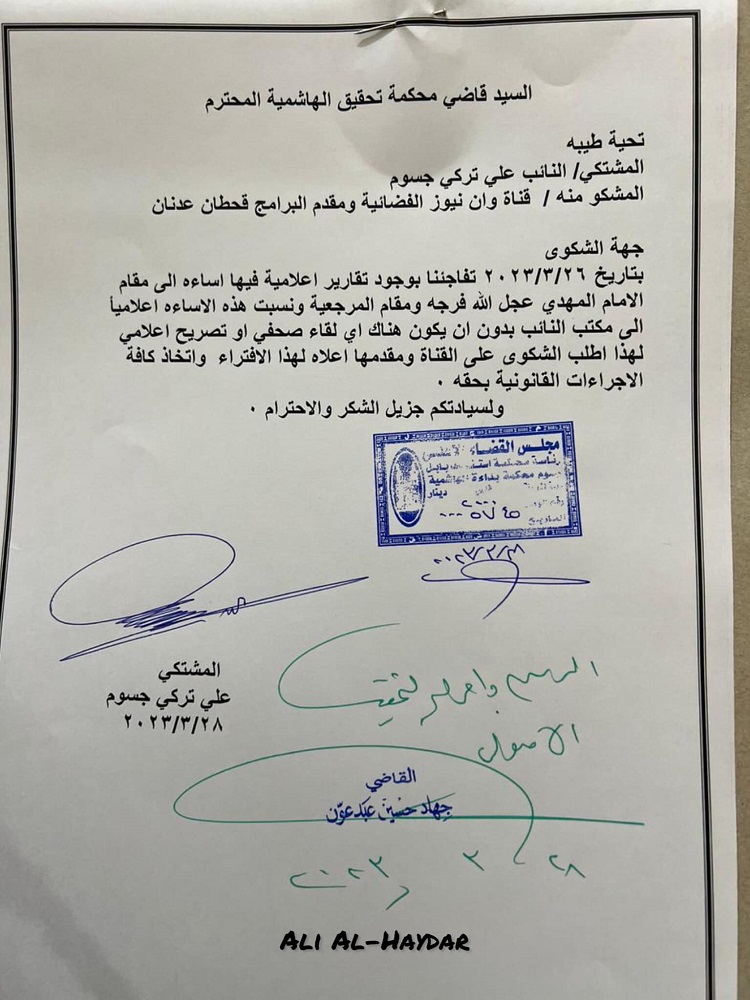 السيد قاضي محكمة تحقيق الهاشمية المحترم
تحية طيبه
المشتكي/ النائب علي تركي جسوم
المشكو منه / قناة وان نيوز الفضائية ومقدم البرامج قحطان عدنان
جهة الشكوى
بتاريخ ٢٠٢٣/٣/٢٦ تفاجئنا بوجود تقارير اعلامية فيها اساءه الى مقام
الامام المهدي عجل الله فرجه ومقام المرجعية ونسبت هذه الاساءه اعلامياً
الى مكتب النائب بدون ان يكون هناك اي لقاء صحفي او تصريح اعلامي
لهذا اطلب الشكوى على القناة ومقدمها اعلاه لهذا الافتراء واتخاذ كافة
الاجراءات القانونية بحقه ٠
ولسيادتكم جزيل الشكر والاحترام ٠
مجلس القضاء
رئاسة محكمة استئناف بابل
رسوم محكمة بداءة الهاشمية
دينار
٢٠٠٠
٥٧٤٥
المشتكي
علي تركي جسوم
٢٠٢٣/٣/٢٨
الرسم
الاصول
القاضي
جهاد حسين عبد عون
٢٨ ٣ ٢٠٢٣
ALI AL-HAYDAR